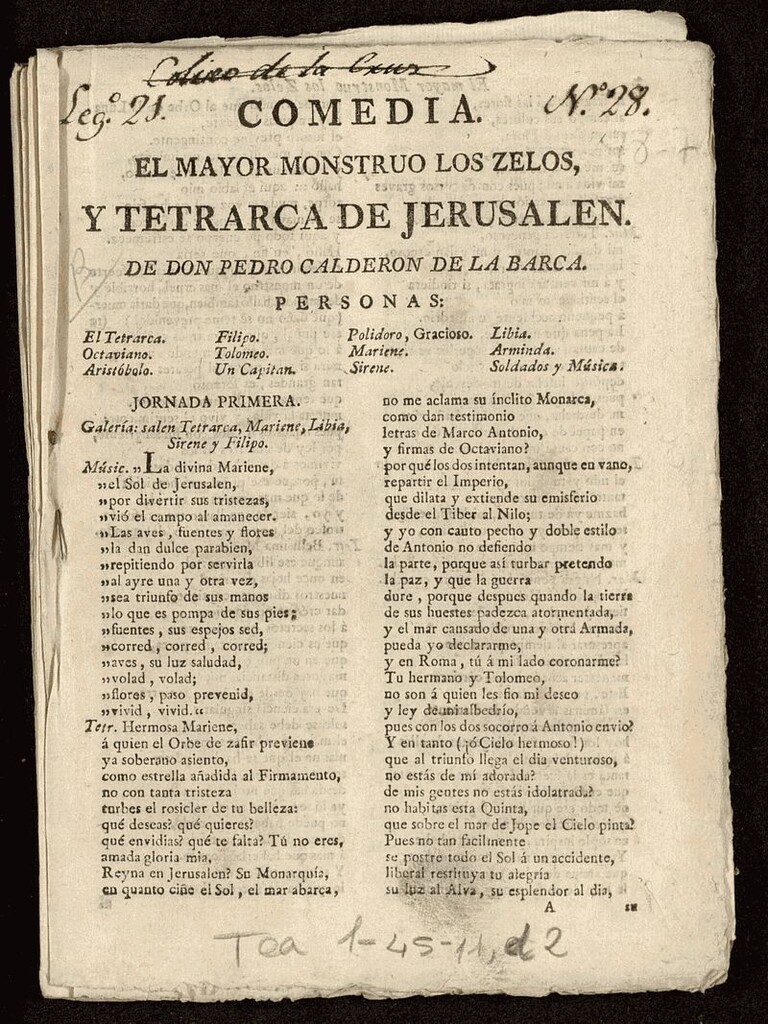 Coliseo de la Cruz
Leg.º 21.
N.º 28.
COMEDIA.
EL MAYOR MONSTRUO LOS ZELOS,
Y TETRARCA DE JERUSALEN.
DE DON PEDRO CALDERON DE LA BARCA.
PERSONAS:
El Tetrarca. Filipo. Polidoro, Gracioso. Libia.
Octaviano. Tolomeo. Mariene. Arminda.
Aristóbolo. Un Capitan. Sirene. Soldados y Música.
JORNADA PRIMERA.
Galería: salen Tetrarca, Mariene, Libia,
Sirene y Filipo.
Músic. „La divina Mariene,
„el Sol de Jerusalen,
„por divertir sus tristezas,
„vió el campo al amanecer.
„Las aves, fuentes y flores
„la dan dulce parabien,
„repitiendo por servirla
„al ayre una y otra vez,
„sea triunfo de sus manos
„lo que es pompa de sus pies;
„fuentes, sus espejos sed,
„corred, corred, corred;
„aves, su luz saludad,
„volad, volad;
„flores, paso prevenid,
„vivid, vivid.“
Tetr. Hermosa Mariene,
á quien el Orbe de zafir previene
ya soberano asiento,
como estrella añadida al Firmamento,
no con tanta tristeza
turbes el rosicler de tu belleza:
qué deseas? qué quieres?
qué envidias? qué te falta? Tú no eres,
amada gloria mia,
Reyna en Jerusalen? Su Monarquía,
en quanto ciñe el Sol, el mar abarca,
no me aclama su ínclito Monarca,
como dan testimonio
letras de Marco Antonio,
y firmas de Octaviano?
porqué los dos intentan, aunque en vano,
repartir el Imperio,
que dilata y extiende su emisferio
desde el Tiber al Nilo;
y yo con cauto pecho y doble estilo
de Antonio no defiendo
la parte, porque así turbar pretendo
la paz, y que la guerra
dure, porque despues quando la tierra
de sus huestes padezca atormentada,
y el mar cansado de una y otra Armada,
pueda yo declararme,
y en Roma, tú á mi lado coronarme?
Tu hermano y Tolomeo,
no son á quien les fio mi deseo
y ley de mi albedrío,
pues con los dos socorro á Antonio envio?
Y en tanto (¡ó Cielo hermoso!)
que al triunfo llega el dia venturoso,
no estás de mí adorada?
de mis gentes no estás idolatrada?
no habitas esta Quinta,
que sobre el mar de Jope el Cielo pinta?
Pues no tan facilmente
se postre todo el Sol á un accidente,
liberal restituya tu alegría
su luz al Alva, su esplendor al dia,
A
Tea 1-45-11, d2